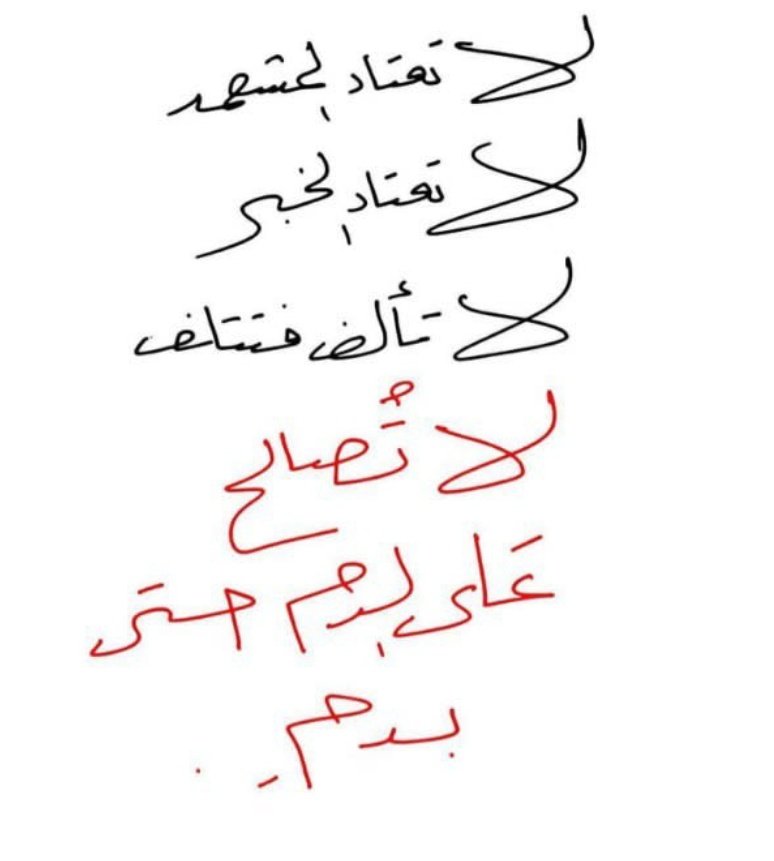 لا تعتاد المشهد
لا تعتاد الخبر
لا تألف فتتلف
لا تُصالح
على الدم حتى
بدم.